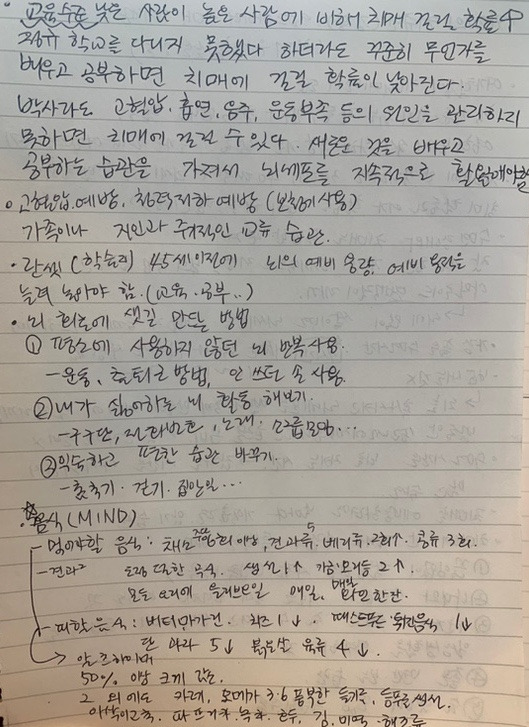 · 교육수준 낮은 사람이 높은 사람에 비해 치매 걸릴 확률↑
정규 학교를 다니지 못했다 하더라도 꾸준히 무언가를
배우고 공부하면 치매에 걸릴 확률이 낮아진다.
박사라도 고혈압, 흡연, 음주, 운동부족 등의 원인을 관리하지
못하면 치매에 걸릴 수 있다. 새로운 것을 배우고
공부하는 습관을 가져서 뇌세포를 지속적으로 활용해야함
· 고혈압.예방, 청력저하 예방 (보청기사용)
가족이나 지인과 주기적인 교류 습관.
· 란셋 (학술지) 45세이전에 뇌의 예비 용량, 예비 용량을
높여 놓아야 함. (교육.공부..)
· 뇌 회로에 샛길 만드는 방법
① 평소에 사용하지 않던 뇌 반복 사용.
-운동, 출퇴근 방법, 안 쓰던 손 사용.
② 내가 싫어하는 뇌 활동 해보기.
-구구단, 전화번호, 노래, 소그룹모임...
③ 익숙하고 편한 습관 바꾸기.
-춤추기. 걷기. 집안일...
☆· 음식 (MIND)
- 먹어야할 음식: 채소 주6회 이상, 견과류 5, 베리류.2회↑ 콩류 3회.
-견과² 통곡 생선 1↑ 가금 2↑.
모든 요리에 올리브오일 매일, 매일 한잔.
- 피할음식: 버터 마가린 치즈 1↓. 패스트푸드 튀긴음식 1↓
단 과자 5↓ 붉은살 육류 4↓.
→ 알츠하이머
50% 이상 크게 감소.
그 외에도 카레, 오메가 3.6 풍부한 들기름, 등푸른생선.
호두, 김, 미역, 해조류